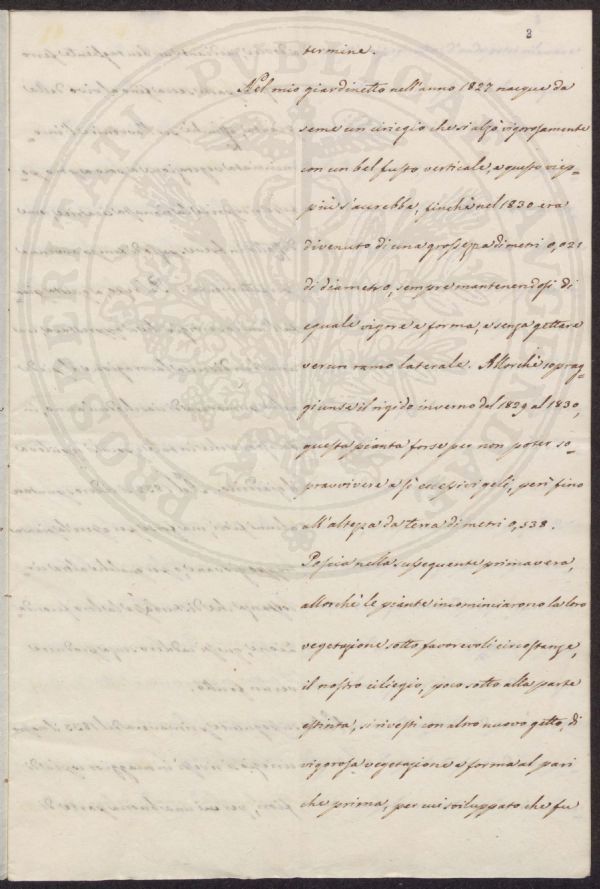 2
termine.
Nel mio giardinetto nell'anno 1827 nacque da
seme un ciriegio che si alzò vigorosamente
con un bel fusto verticale, e questo viep=
più s'accrebbe, finchè nel 1830 era
divenuto di una grossezza di metri 0,021
di diametro, sempre mantenendosi di
eguale vigore e forma, e senza gettare
verun ramo laterale. Allorchè soprag=
giunse il rigido inverno del 1829 al 1830,
questa pianta forse per non poter so=
pravvivere a sì eccessivi geli, perì fino
all'altezza da terra di metri 0,538.
Poscia nella susseguente primavera,
allorchè le piante incominciarono la loro
vegetazione sotto favorevoli circostanze,
il nostro ciliegio, poco sotto alla parte
estinta, si rivestì con altro nuovo getto, di
vigorosa vegetazione e forma al pari
che prima, per cui sviluppato che fu
PROSPERITATI PUBLICAE